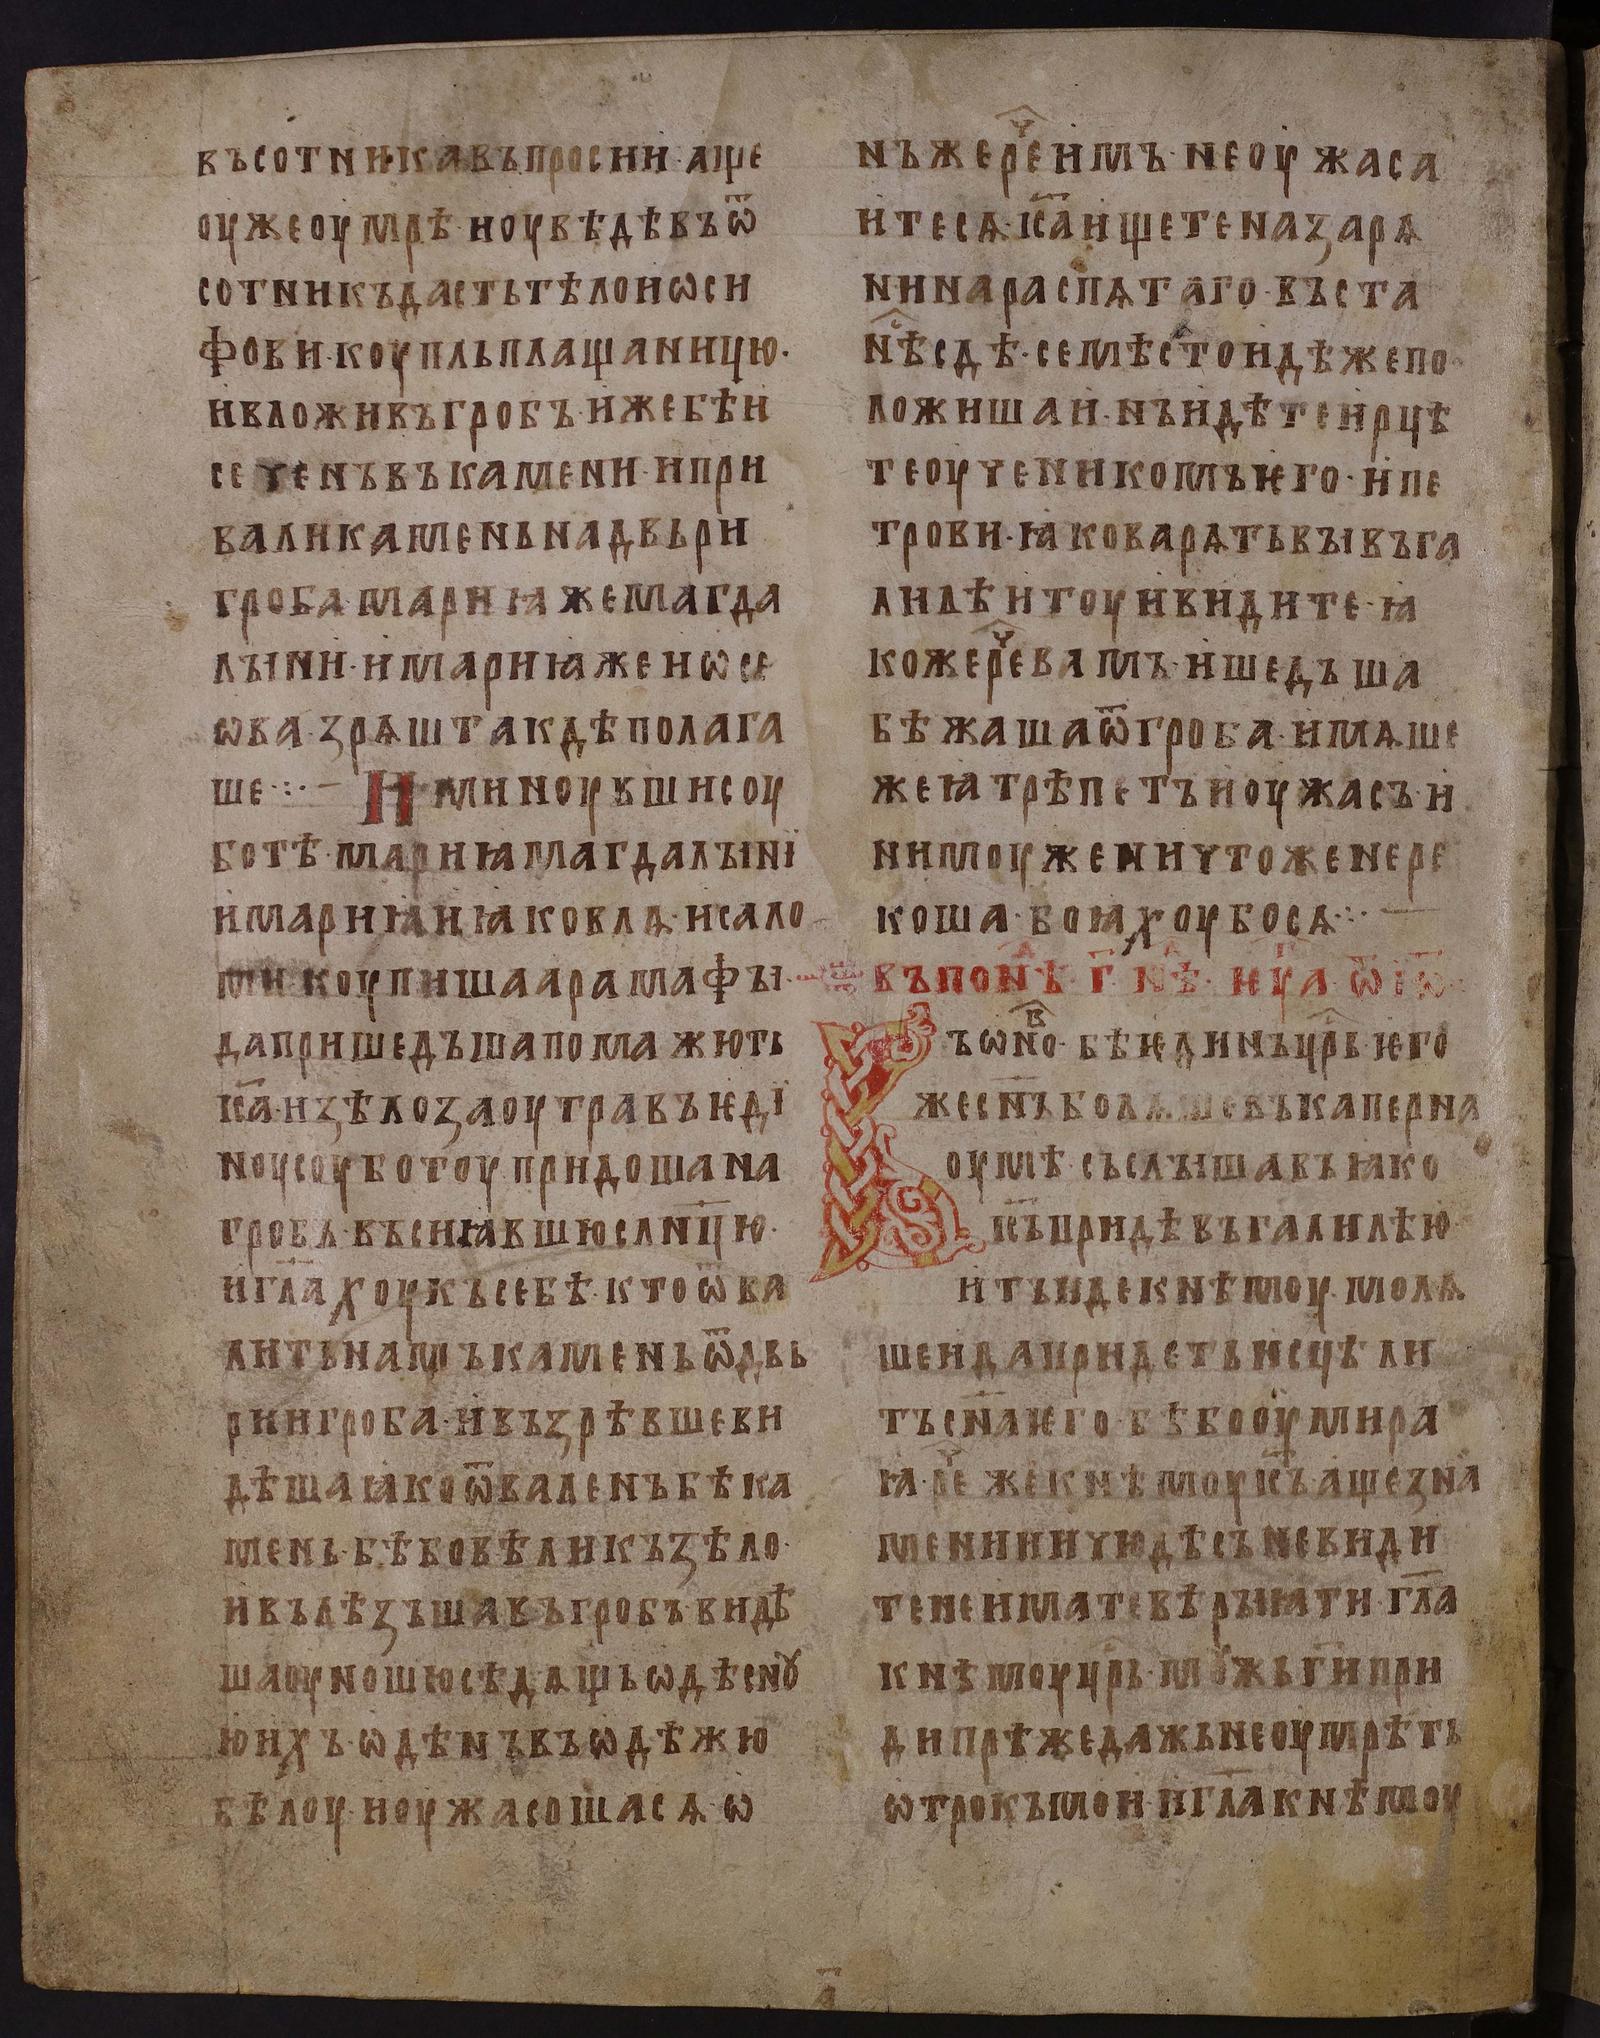 въсотникавъпросии·аще
оужеоумрѣ·ноувѣдѣвъѿ
сотникъдастьтѣлоиѡси
фови·коупльплащаницю·
ивложивъгробъ·ижебѣи
сеченъвъкамени·ипри
валикаменьнадвьри
гроба·мариꙗжемагда
лыни·имариꙗжеиѡсе
ѡва·зрѧштакдѣполага
ше·:·— Иминоувшисоу
ботѣ·мариꙗмагдалыні
имариꙗиꙗковлѧ·исало
ми·коупишаарамафы·
дапришедъшапомажють
іса҃·изѣлозаоутравъѥді
ноусоуботоупридошана
гробъ·въсиꙗвшюслн҃цю·
игл҃ахоукъсебѣ·ктоѿва
литьнамъкаменьѿдвь
риигроба·ивъзрѣвшеви
дѣшаꙗкоѿваленъбѣка
мень·бѣбовѣликъзѣло·
ивълѣзъшавъгробъ·видѣ
шаоуношюсѣдѧщьѡдѣснꙋ
юихъ·ѡдѣнъвъѡдѣжю
бѣлоу·ноужасошасѧ·ѡ
нъжерⷱ҇еимъ·неоужаса
итесѧ·іса҃ищетеназарѧ
нинараспѧтаго·въста
нⷭ҇ѣсдѣ·семѣстоидѣжепо
ложишаи·нъидѣтеирцѣ
теоученикомъѥго·ипе
трови·ꙗковарѧтьвывъга
лилѣитоуивидите·ꙗ
кожерⷱ҇евамъ·ишедъша
бѣжашаѿгроба·имѧше
жеꙗтрѣпетъиоужасъ·и
никомоужеиничтоженере
коша·боꙗхоубосѧ·:·—
въпонⷣѣ·г҃·нⷣѣ·
ъѡноⷡ·бѣѥдинъцр҃ь·ѥго
жесн҃ъболѧшевъкаперна
оумѣ·съслышавъꙗко
іс҃ъпридѣвъгалилѣю·
итъидекнѣмоу·молѧ
шеидапридетьисцѣли
тьсн҃аѥго·бѣбооумира
ꙗ·рⷱ҇ежекнѣмоуіс҃ъ·ащезна
менииичюдѣсъневиди
тенеиматевѣрыꙗти·гл҃а
кнѣмоуцр҃ь·мꙋжьг҃ипри
дипрѣжедажьнеоумрѣть
ѡтрокъмои·игл҃акнѣмоу